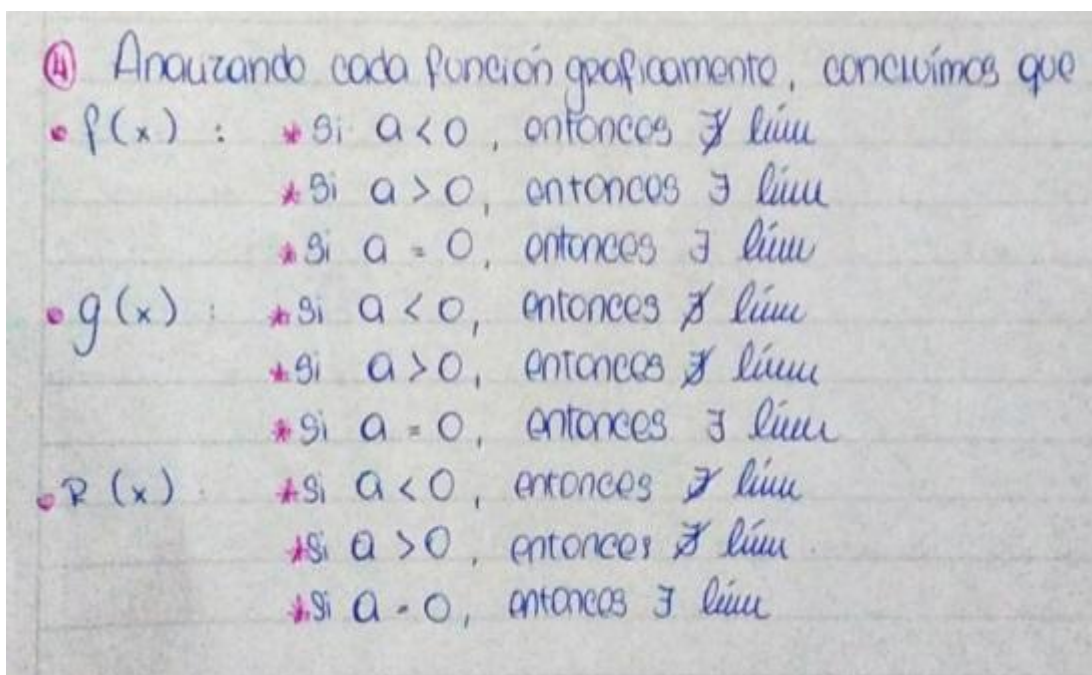 ④ Analizando cada función graficamente, concluímos que
• f(x) : * Si a < 0, entonces ∄ lím
* Si a > 0, entonces ∃ lím
* Si a = 0, entonces ∃ lím
• g(x) : * Si a < 0, entonces ∄ lím
* Si a > 0, entonces ∄ lím
* Si a = 0, entonces ∃ lím
• R(x) : * Si a < 0, entonces ∄ lím
* Si a > 0, entonces ∄ lím.
* Si a = 0, entonces ∃ lím